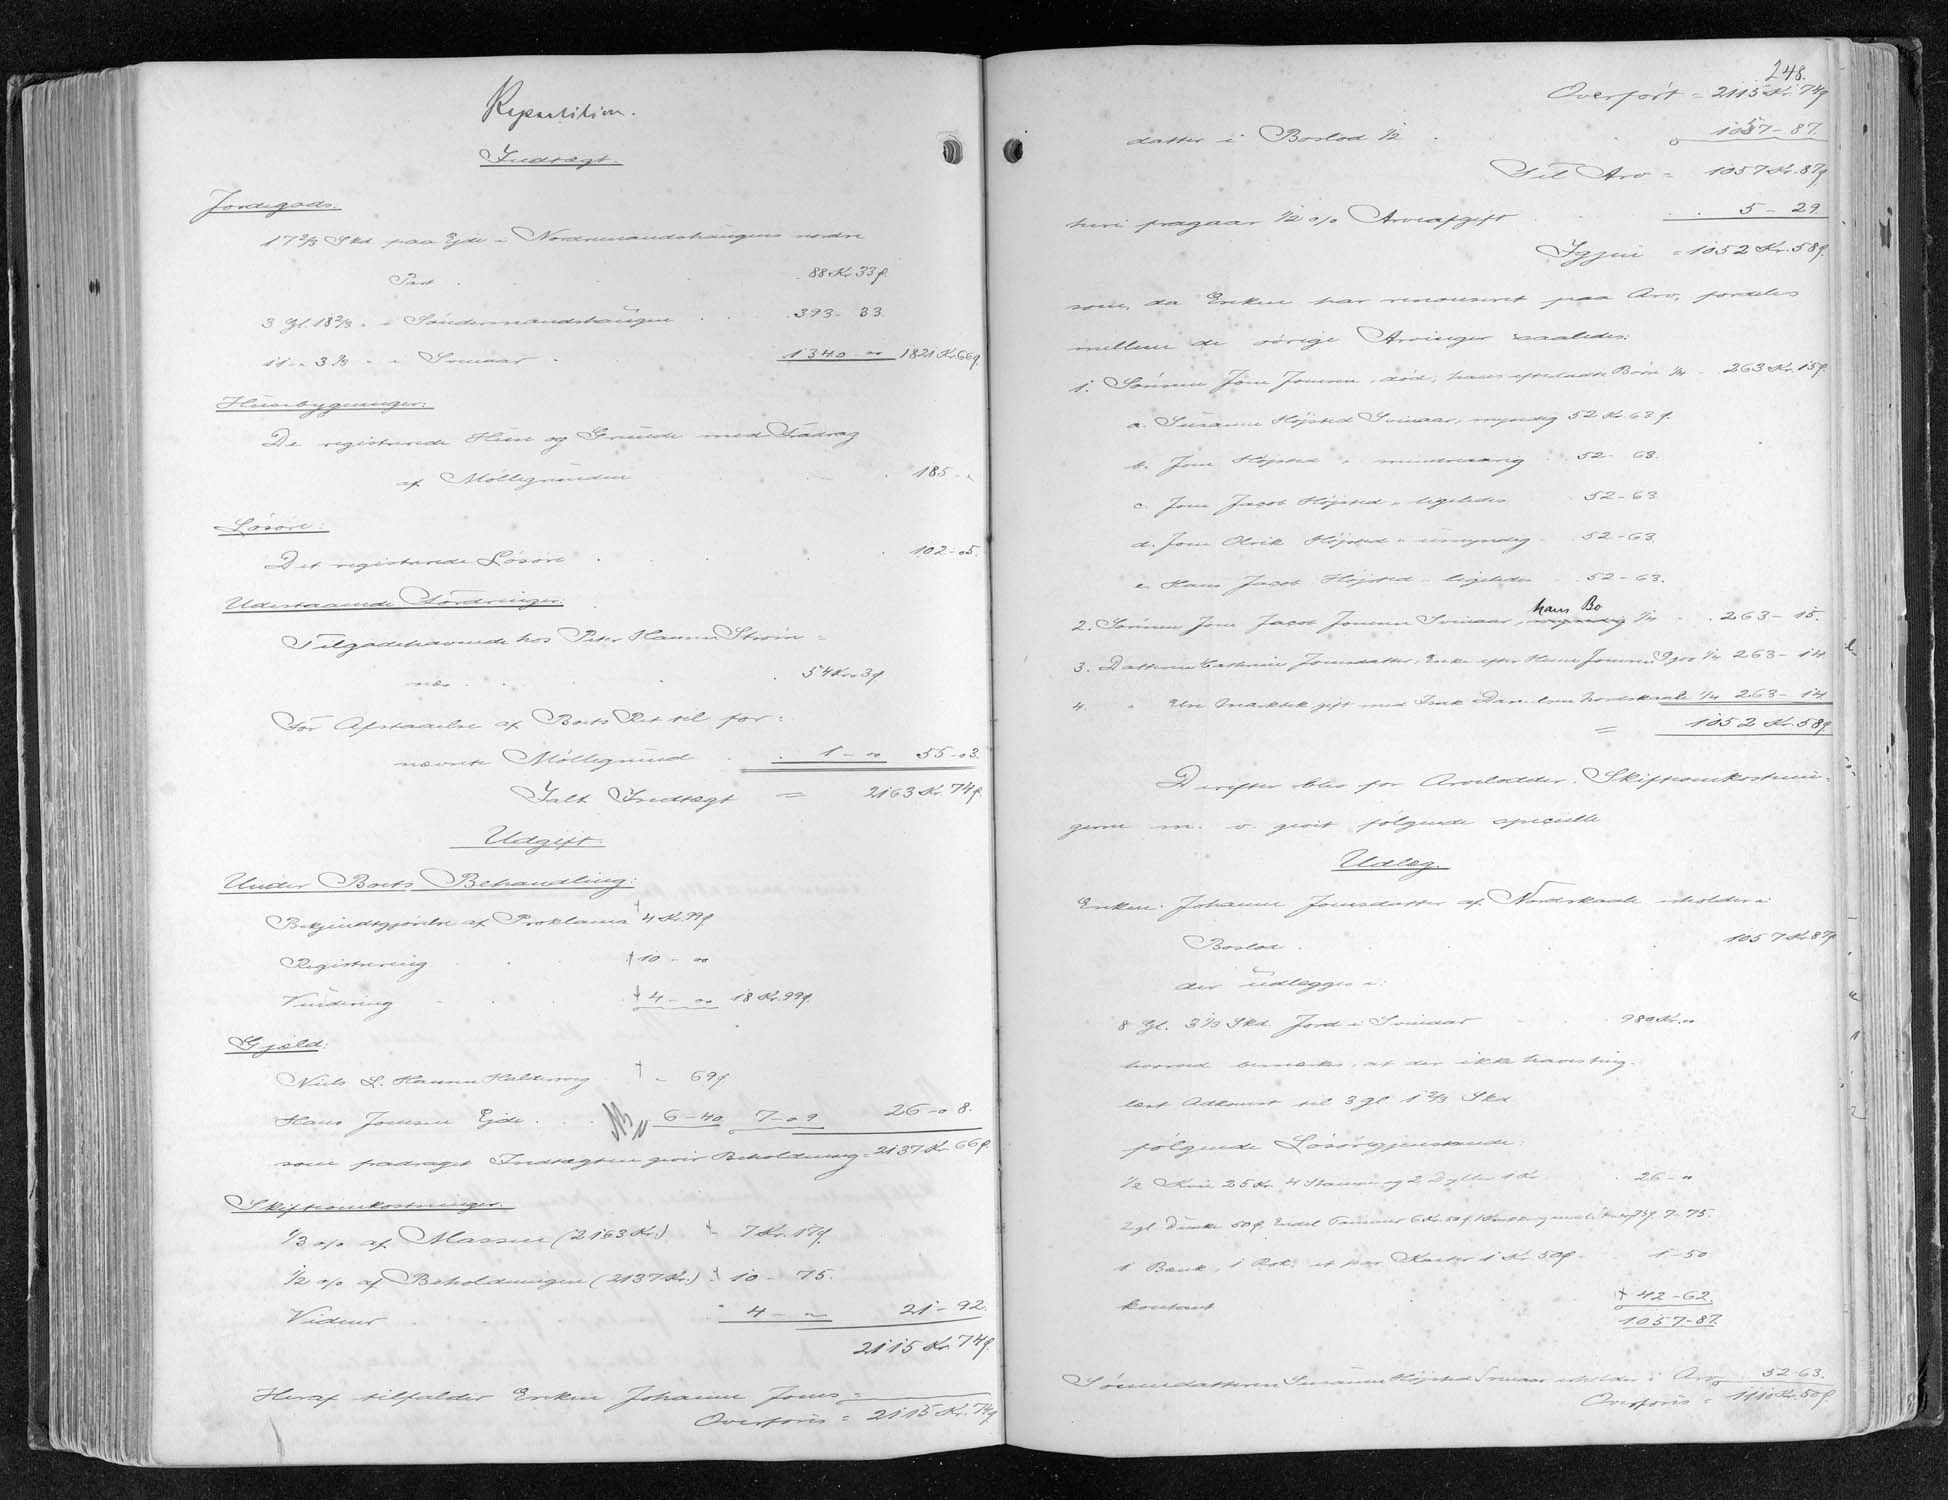 Repartition.
Indtægt.
Jordegods:
17 2/3 Skd. paa Ejde i Nordremandshaugens nordre
Part . . 88 Kr. 33 ø.
3 Gl. 18 2/3 " i Söndermandshaugen . . 393 - 33.
11 " 3 1/3 " " Svinaar . 1340 - " 1821 Kr. 66 ø.
Husebygninger:
De registrerede Huse og Grunde med Fradrag
af Møllegrunden . 185 - "
Løsøre:
Det registrerede Løsøre . . . 102 - 05.
Udestaaende Fordringer:
Tilgodehavende hos Peter Hansen Ström=
næs . . . 54 Kr. 03 ø
For Afstaaelse af Boets Ret til for=
nævnte Møllegrund . . 1 - " 55 - 03.
Ialt Indtægt = 2163 Kr. 74 ø.
Udgift.
Under Boets Behandling:
Bekjendtgjørelse af Proklama 4 Kr. 99 ø.
Registrering . . 10 - "
Vurdering . . 4 - " 18 Kr. 99 ø.
Gjæld:
Niels L. Hansen Haldersvig " - 69 ø
Hans Joensen Ejde . . . NB 6 - 40 7 - 09 26 - 08.
som fradraget Indtægten giver Beholdning = 2137 Kr. 66 ø.
Skifteomkostninger:
1/3 o/o af Massen (2163 Kr.) 7 Kr. 17 ø.
1/2 o/o af Beholdningen (2137 Kr.) 10 - 75.
Vidner . . 4 - " 21 - 92.
2115 Kr. 74 ø.
Heraf tilfalder Enken Johanne Joens=
Overføres = 2115 Kr. 74 ø
248.
Overført = 2115 Kr. 74 ø
datter i Boslod 1/2 . . 1057 - 87.
Til Arv = 1057 Kr. 87 ø
heri fragaar 1/2 o/o Arveafgift . . . 5 - 29.
Igjen = 1052 Kr. 58 ø.
som, da Enken har renonceret paa Arv, fordeles
mellem de øvrige Arvinger saaledes:
1. Sønnen Joen Joensen, død, hans efterladte Børn 1/4 . 263 Kr. 15 ø.
a. Susanne Højsted Svinaar, myndig 52 Kr. 63 ø.
b. Joen Højsted " mindreaarig . 52 - 63.
c. Joen Jacob Højsted " ligeledes . 52 - 63
d. Joen Olrik Højsted " umyndig . 52 - 63
e. Hans Jacob Højsted " ligeledes . 52 - 63.
hans Bo
2. Sønnen Joen Jacob Joensen Svinaar, myndig 1/4 . . 263 - 15.
3. Datteren Cathrine Joensdatter, Enke efter Hans Joensen Gjov 1/4 263 - 14
4. " gift med Isak Danielsen Nordskaale 1/4 263 - 14
= 1052 Kr. 58 ø.
Derefter blev for Arvelodder, Skifteomkostnin=
gerne m. v. gjort følgende specielle
Udlæg.
Enken Johanne Joensdatter af Nordskaale erholder i
Boslod . . . 1057 Kr. 87 ø
der udlægges i:
8 Gl. 3 1/3 Skd. Jord i Svinaar . . 980 Kr. "
hvorved bemærkes, at der ikke haves ting=
læst Adkomst til 3 gl. 1 2/3 Skd
følgende Løsøregjenstande:
1/2 Ko 25 Kr. 4 og 2 Dyller 1 Kr. . 26 - "
2 gl. Dunke 50 ø. Endel Tømmer 6 Kr. 50 ø 75 ø. 7 - 75.
1 Bænk, 1 Rok, et par Karter 1 Kr. 50 ø. . 1 - 50
kontant . 42 - 62.
1057 - 87.
Sønnedatteren Susanne Højsted Svinaar erholder i Arv 52 - 63.
Overføres = 1110 Kr. 50 ø.